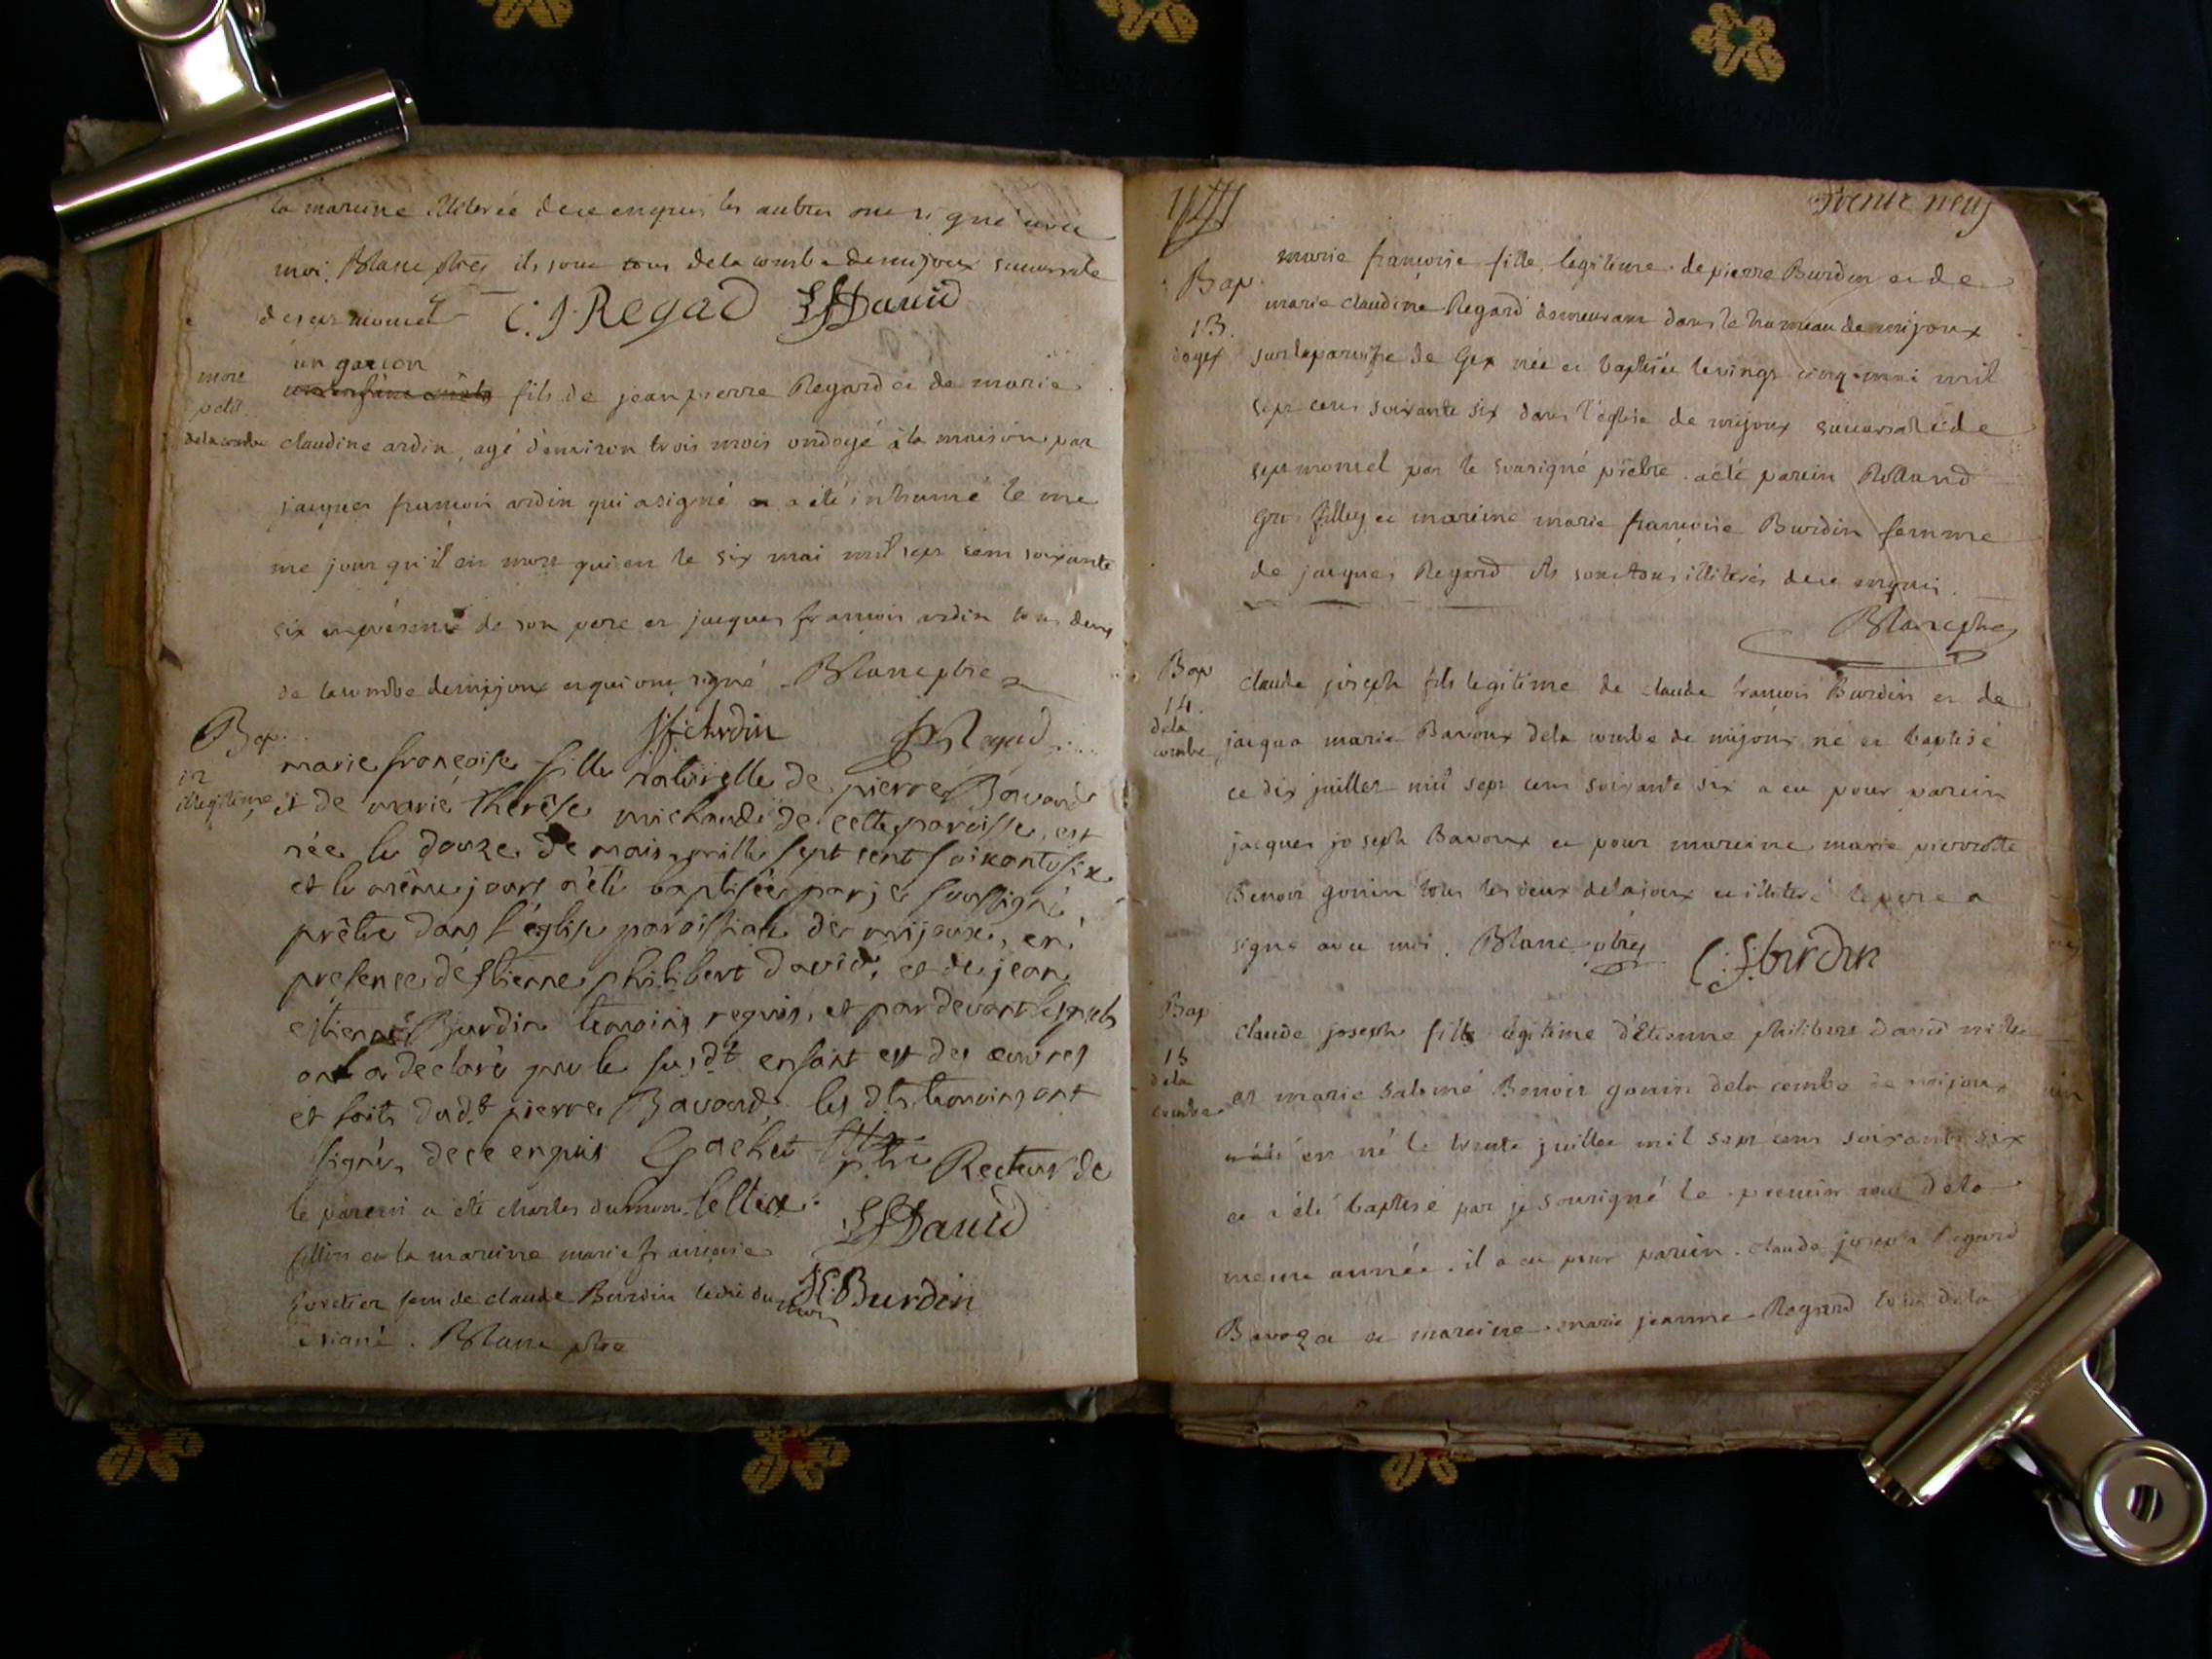 la mareine illiterée de ce enquis les autres ont signé avec
moi. Blanc ptre ils sont tous de la combe de mijoux succursale
de septmoncel C. J. Regad E P David
mort
petit
de la combe
un garcon
fils de jean pierre Regard et de marie
claudine ardin, agé d'environ trois mois ondoyé à la maison par
jacques francois ardin qui a signé a été inhumé le me
me jour qu'il est mort qui est le six mai mil sept cent soixante
six en présence de son pere et jacques francois ardin tous deux
de la combe de mijoux et qui ont signé Blanc ptre
J f Ardin J P Regad
Bap.
12
illegitime
marie françoise fille naturelle de pierre Bavoud
et de marie therèse michaud de cette paroisse, est
née le douze de mais mille sept sent soixante six
et le même jours a été baptisée par je soussigné
prêtre dans l'église paroissiale de mijoux, en
presence d'estienne philibert david, et de jean
estienne Burdin temoins requis, et pardevant lesquels
on a déclaré que le susdt enfant est des œuvres
et faits dudt pierre Bavoud, les dts temoins ont
signés de ce enquis Gachet ptre Recteur de
le parein a été charles dumon Lellex
fillion et la mareine marie francoise E P David
forestier fem de claude Burdin J E Burdin
signé. Blanc ptre
1766
trente neuf
Bap
13.
de gex
marie francoise fille legitime de pierre Burdin et de
marie claudine Regard demeurant dans le hameau de mijoux
sur la paroisse de Gex née et baptisée le vingt cinq mai mil
sept cens soixante six dans l'eglise de mijoux succursale de
septmoncel par le sousigné pretre a été parein Rolland
Gros filley et mareine marie francoise Burdin femme
de jacques Regard ils sont tous illiterés de ce enquis.
Blanc ptre
Bap
14.
de la
combe
claude joseph fils legitime de claude francois Burdin et de
jaqua marie Bavoux de la combe de mijoux né et baptisé
ce dix juillet mil sept cens soixante six a eu pour parein
jacques joseph Bavoux et pour mareine marie pierrotte
Benoit gonin tous les deux de lajoux et illiteré le pere a
signé avec moi. Blanc ptre C. f. burdin
Bap
15
de la
combe
claude joseph fils légitime d'Etienne philibert david
et marie salomé Benoit gonin de la combe de mijoux
est né le trente juillet mil sept cens soixante six
et a été baptisé par je sousigné le premier aout de la
meme année. il a eu pour parein claude joseph Regard
Bavoza et mareine marie jeanne Regard tous de la